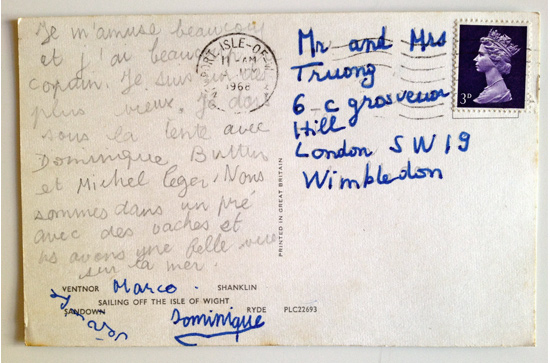 Je m'amuse beaucoup
et j'ai beaucoup
copain. Je suis
plus vieux, je dors
sous la tente avec
Dominique Button
et Michel Leger. Nous
sommes dans un pré
avec des vaches et
ns avons une belle vue
sur la mer.
Marco.
Dominique
VENTNOR SHANKLIN
SAILING OFF THE ISLE OF WIGHT
SANDOWN RYDE PLC22693
PRINTED IN GREAT BRITAIN
ISLE-OF-W
11 - AM
1968
3D
Mr and Mrs
Truong
6 c grosvenor
Hill
London SW19
Wimbledon